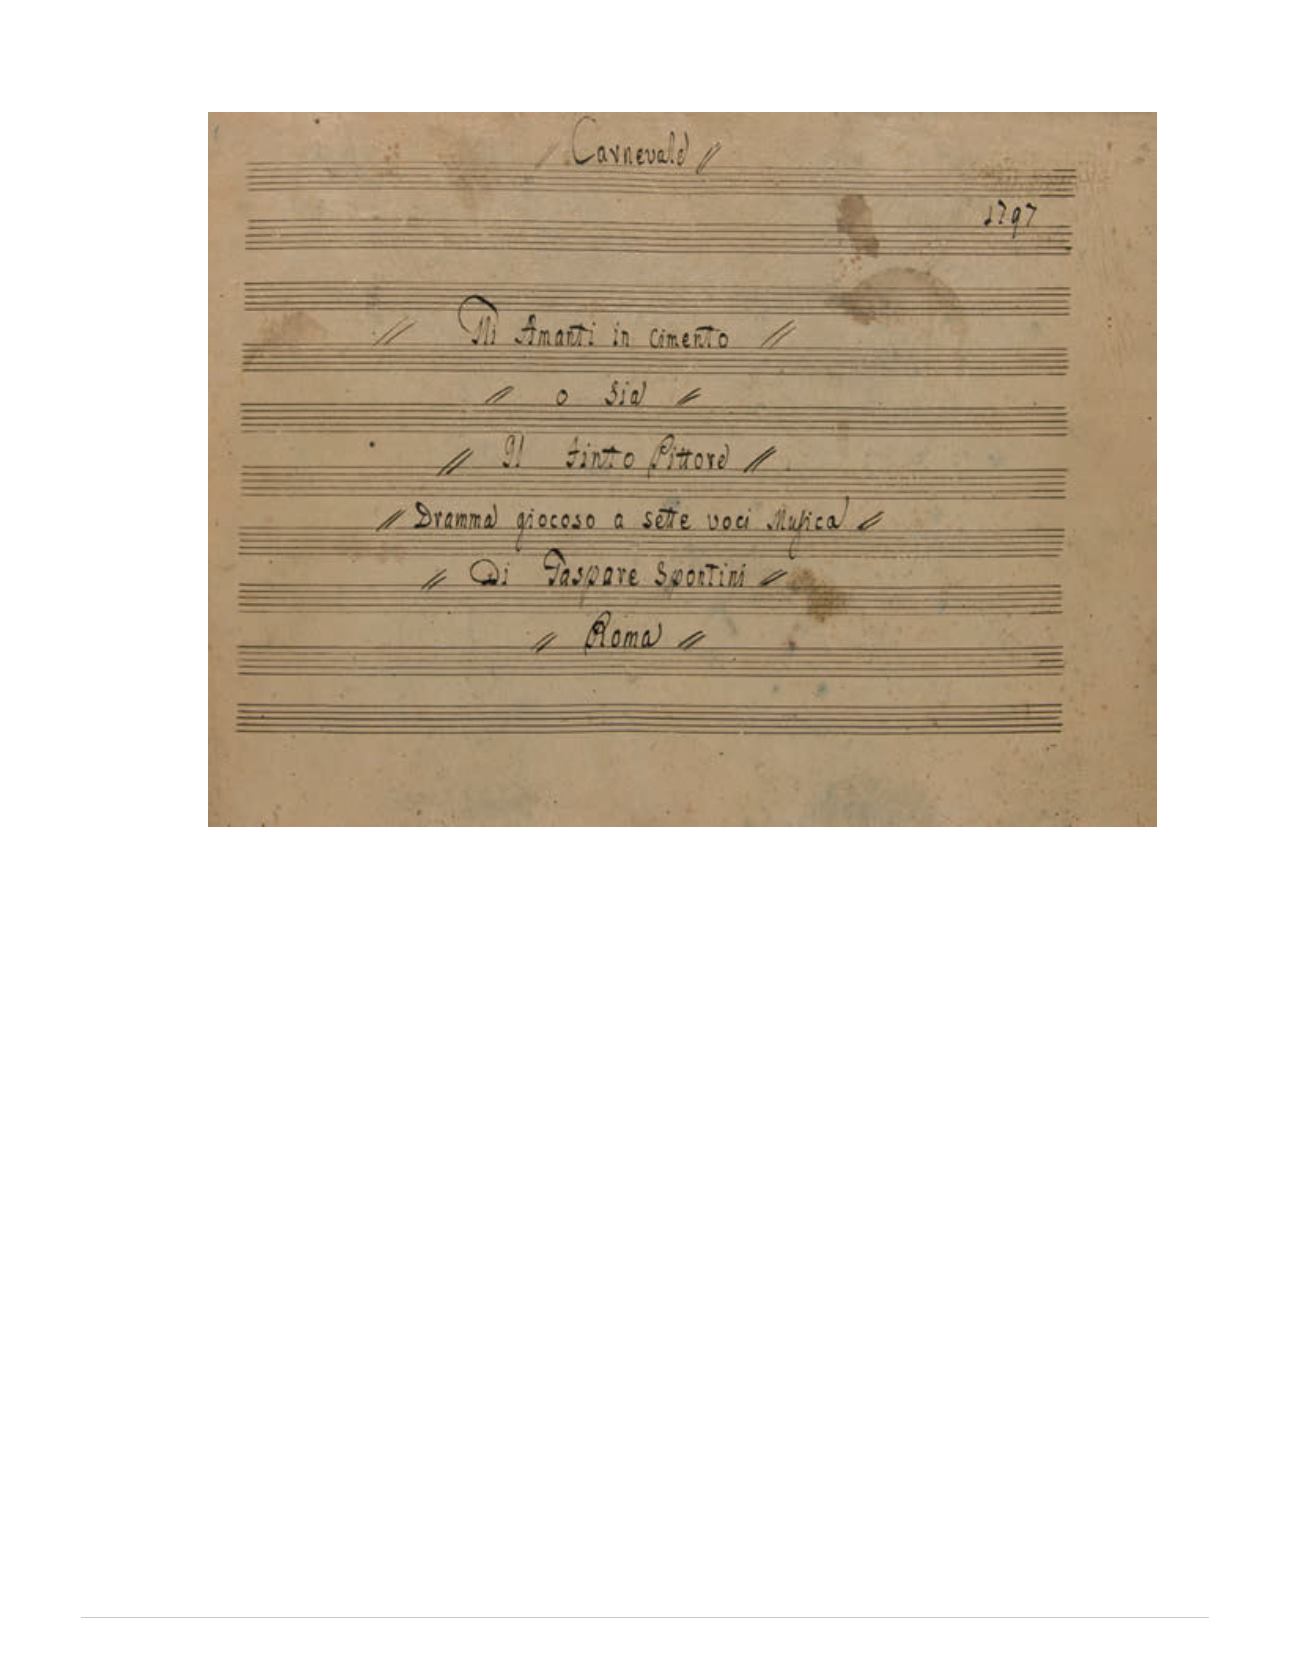 Carnevale //
1797
// Gli Amanti in Cimento //
// o Sia //
// Il finto Pittore //
// Dramma giocoso a sette voci Musica //
// Di Gaspare Spontini //
// Roma //